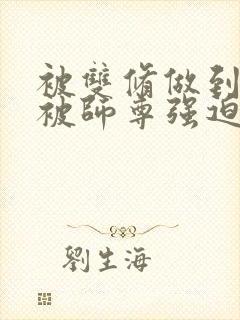 被雙脩做到
被師尊强迫
劉生海